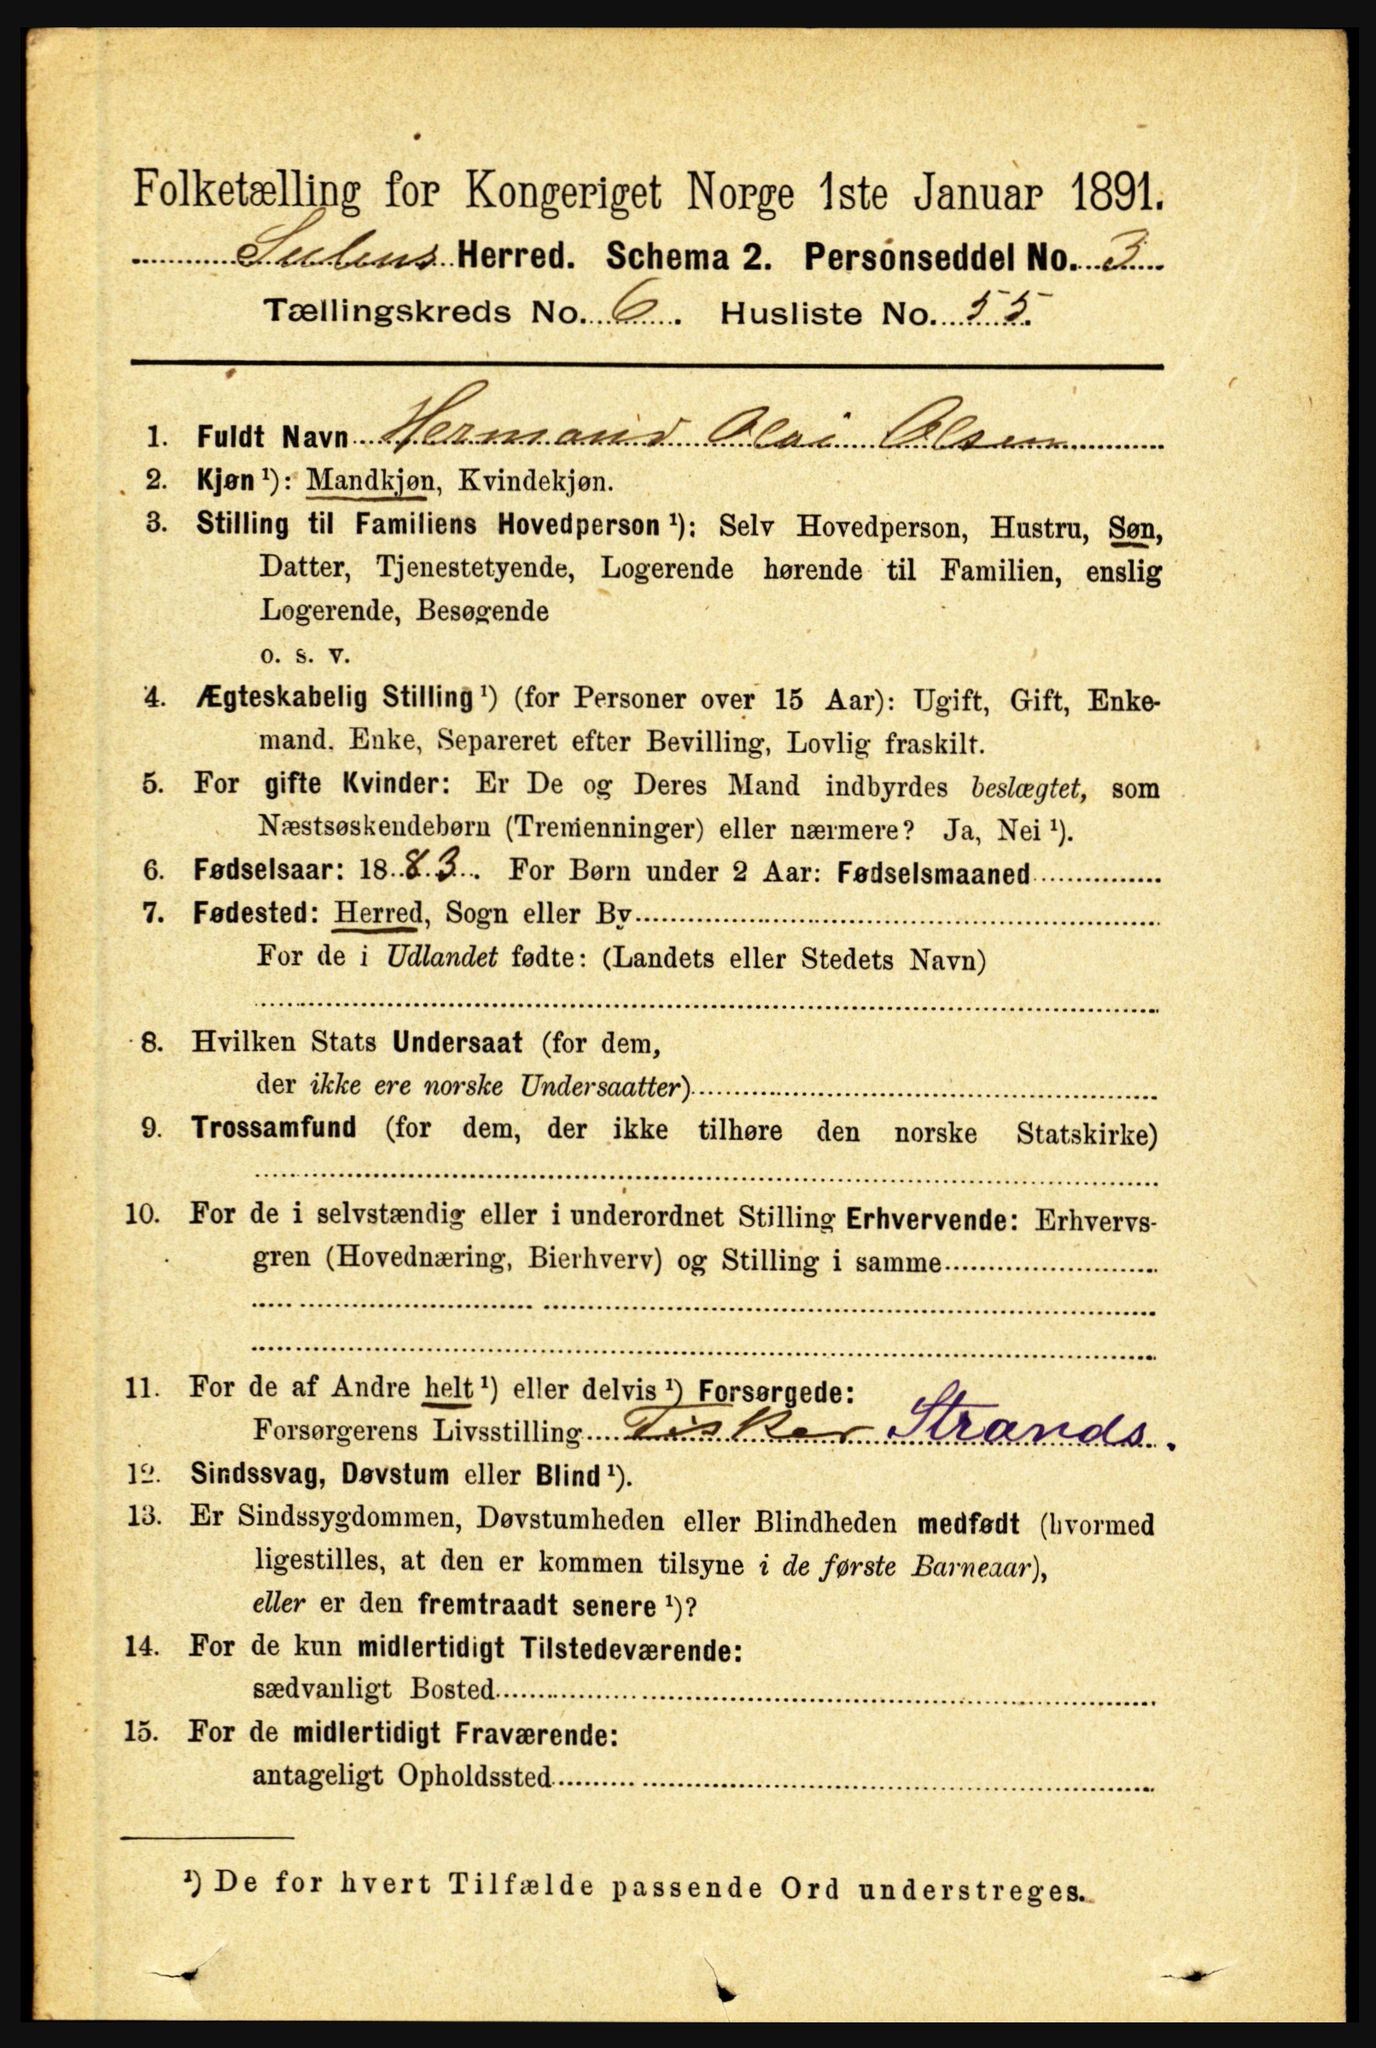 Folketælling for Kongeriget Norge 1ste Januar 1891.
Sulens Herred. Schema 2. Personseddel No. 3
Tællingskreds No. 6. Husliste No. 55.
1. Fuldt Navn Hermand Olai Olsen
2. Kjøn ¹): Mandkjøn, Kvindekjøn.
3. Stilling til Familiens Hovedperson ¹): Selv Hovedperson, Hustru, Søn,
Datter, Tjenestetyende, Logerende hørende til Familien, enslig
Logerende, Besøgende
o. s. v.
4. Ægteskabelig Stilling ¹) (for Personer over 15 Aar): Ugift, Gift, Enke-
mand, Enke, Separeret efter Bevilling, Lovlig fraskilt.
5. For gifte Kvinder: Er De og Deres Mand indbyrdes beslægtet, som
Næstsøskendebørn (Tremenninger) eller nærmere? Ja, Nei ¹).
6. Fødselsaar: 1883. For Børn under 2 Aar: Fødselsmaaned
7. Fødested: Herred, Sogn eller By
For de i Udlandet fødte: (Landets eller Stedets Navn)
8. Hvilken Stats Undersaat (for dem,
der ikke ere norske Undersaatter)
9. Trossamfund (for dem, der ikke tilhøre den norske Statskirke)
10. For de i selvstændig eller i underordnet Stilling Erhvervende: Erhvervs-
gren (Hovednæring, Bierhverv) og Stilling i samme
11. For de af Andre helt ¹) eller delvis ¹) Forsørgede:
Forsørgerens Livsstilling Fisker Strands.
12. Sindssvag, Døvstum eller Blind ¹).
13. Er Sindssygdommen, Døvstumheden eller Blindheden medfødt (hvormed
ligestilles, at den er kommen tilsyne i de første Barneaar),
eller er den fremtraadt senere ¹)?
14. For de kun midlertidigt Tilstedeværende:
sædvanligt Bosted
15. For de midlertidigt Fraværende:
antageligt Opholdssted
¹) De for hvert Tilfælde passende Ord understreges.